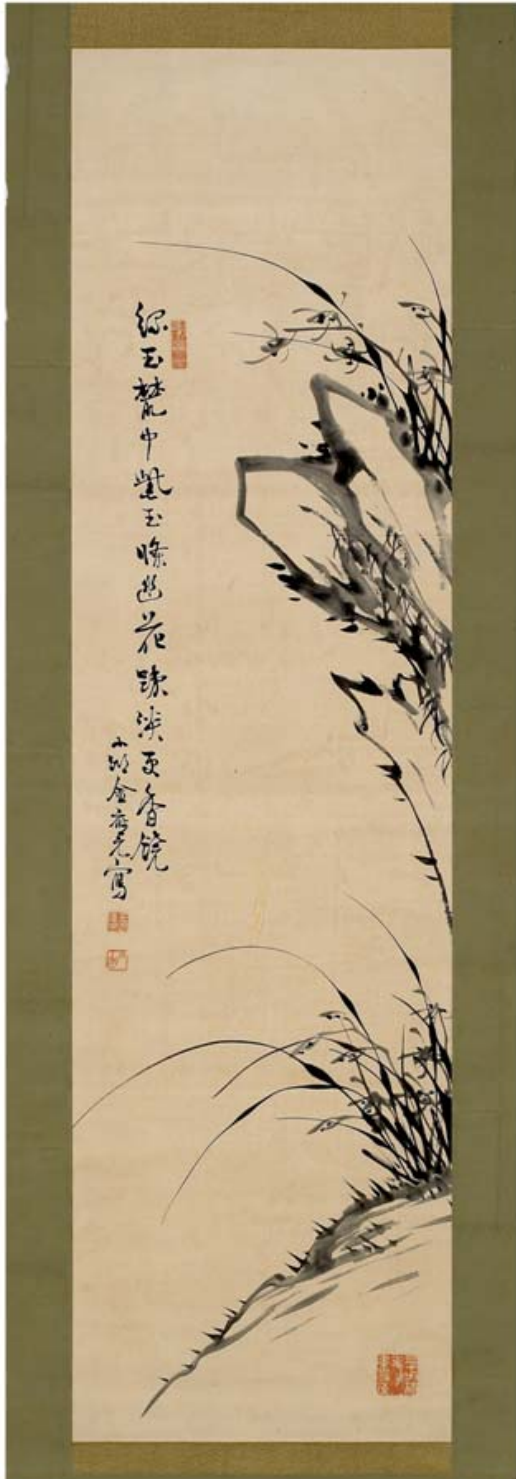 綠玉叢中紫玉條幽花踈淡更香饒
小湖金應元寫